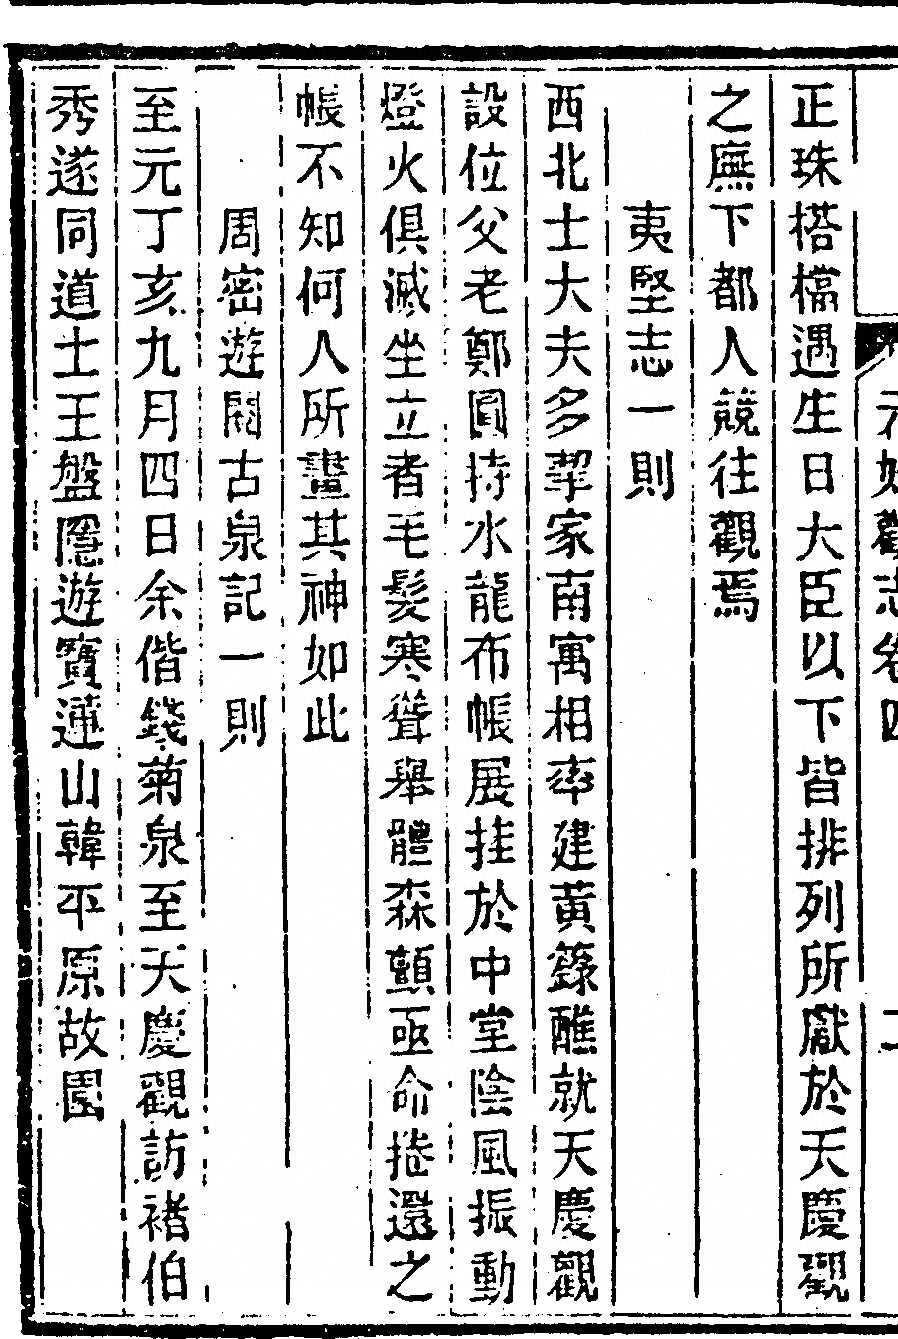 元妙觀志卷四 二
正珠搭檔遇生日大臣以下皆排列所獻於天慶觀
之廡下都人競往觀焉
夷堅志一則
西北士大夫多挈家南寓相率建黃籙醮就天慶觀
設位父老鄭圓持水龍布帳展挂於中堂陰風振動
燈火俱滅坐立者毛髮寒聳舉體森顫亟命捲還之
帳不知何人所畫其神如此
周密遊閱古泉記一則
至元丁亥九月四日余偕錢菊泉至天慶觀訪褚伯
秀遂同道士王盤隱遊寶蓮山韓平原故園